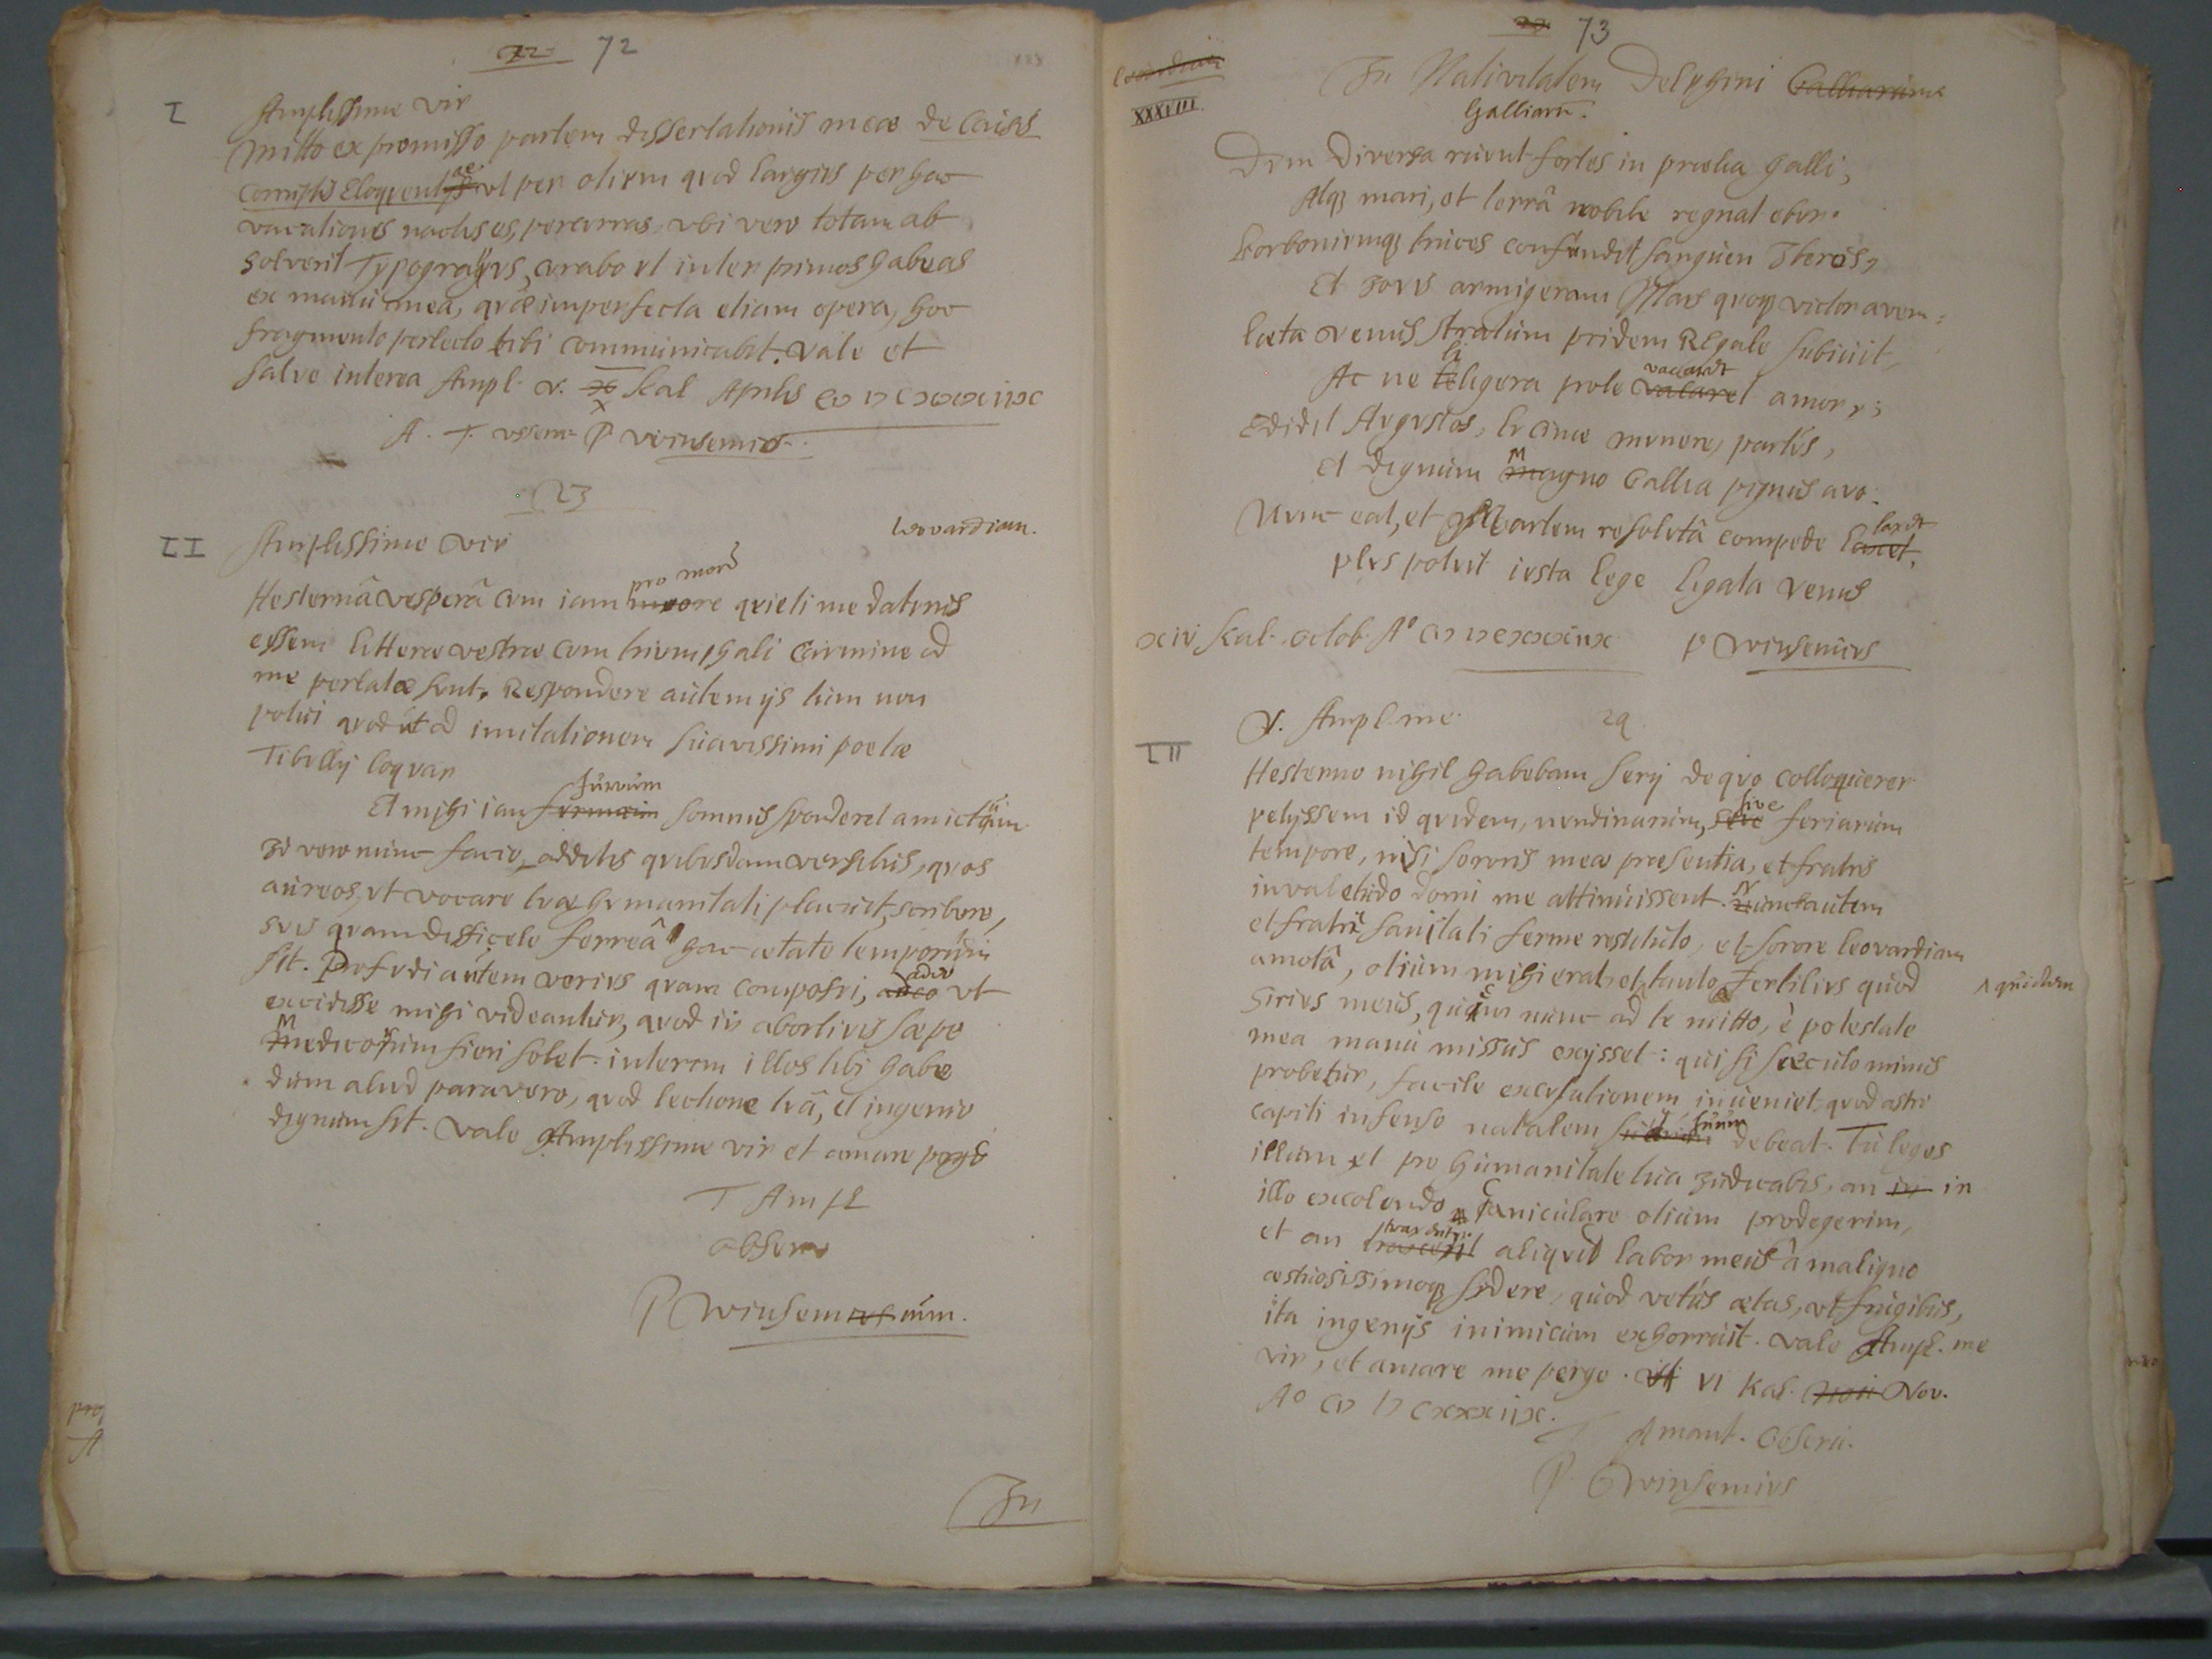 22 72
I
Amplissime vir
Mitto ex promisso partem dissertationis meae de Causis
Corruptis Eloquentiae ut per otium quod largius per hac
vacationes nactus es, percurras. ubi vero totam ab
solverit Typograffus, curabo ut inter primos habeas
ex manu mea, quae imperfecta etiam opera, hoc
fragmento perlecto tibi communicabit. Vale et
salve interea Ampl. v. x Kal Aprilis
A. T. P winsemius
23
Leovardiam.
II
Amplissime vir
Hesternâ vesperâ cum iam pro more quieti me daturus
essem litterae vestrae cum triumphali Carmine ad
me perlatae sunt. Respondere autem ijs tum non
potui quod ut ad imitationem suavissimi poetae
Tibullij loquar
Et mihi iam furvum somnus sponderet amictum
Id vero nunc facio, additis quibusdam versibus, quos
aureos, ut vocare tuae humanitati placuit, scribere,
scis quam difficele ferreâ hac aetate temporum
sit. Profudi autem verius quam composui, adeo ut
excidisse mihi videantur, quod in abortivis saepe
Medicorum fieri solet. interim illos tibi habe
dum aliud paravero, quod lectione tuâ, et ingenio
dignum sit. Vale Amplissime vir et amare perge
T Ampl
observ
P Winsemium.
In
73
Leovardiam
XXXVIII.
In Nativitatem Delphini Galliarum
Galliarum.
Dum diversa ruunt fortes in praelia Galli,
Atq mari, et terrâ nobile regnat ebur.
Borboniumq truces confundit sanguen Iberos,
Et Iovis armigeram Mars quoq victor avem:
laeta Venus stratum pridem REgale subivit,
Ac ne teligera pole vacaret vacaret amor,;
Edidit Augustos, Lucinae munere, partus,
Et dignum Magno Gallia pignus avo.
Nunc eat, et Martem resolutâ compede laxet,
laxet
plus potuit iusta lege ligata Venus
xiv Kal. octob. Aº P Winsemius
V. Ampl. me. 24
III
Hesterno nihil habebam serij de quo colloquerer
petijssem id quidem, nundinarum, sive feriarum
tempore, nisi sororis meae praesentia, et fratris
invaletudo domi me attinuissent. Nunc autem
et fratri sanitati ferme restituto, et sorore leovardiam
amotâ, otium mihi erat et tanto fertilius quod
^ quidem
Sirius meus, quem nunc ad te mitto, è potestate
mea manu missus exijsset: qui si saeculo minus
probetur, facile excusationem inveniet, quod astro
capiti infenso natalem suum debeat. Tu leges
illum et pro humanitate tua Iudicabis, an in
illo excolendo Caniculare otium prodegerim,
et an traxerit aliquid labor meus â maligno
aestuosissimoq sydere, quod vetus aetas, ut frugibus,
ita ingenijs inimicum exhorruit. Vale Ampl. me
vir, et amare me perge. VI Kal. Nov.
Aº
T Amant. Observ.
P. Winsemius